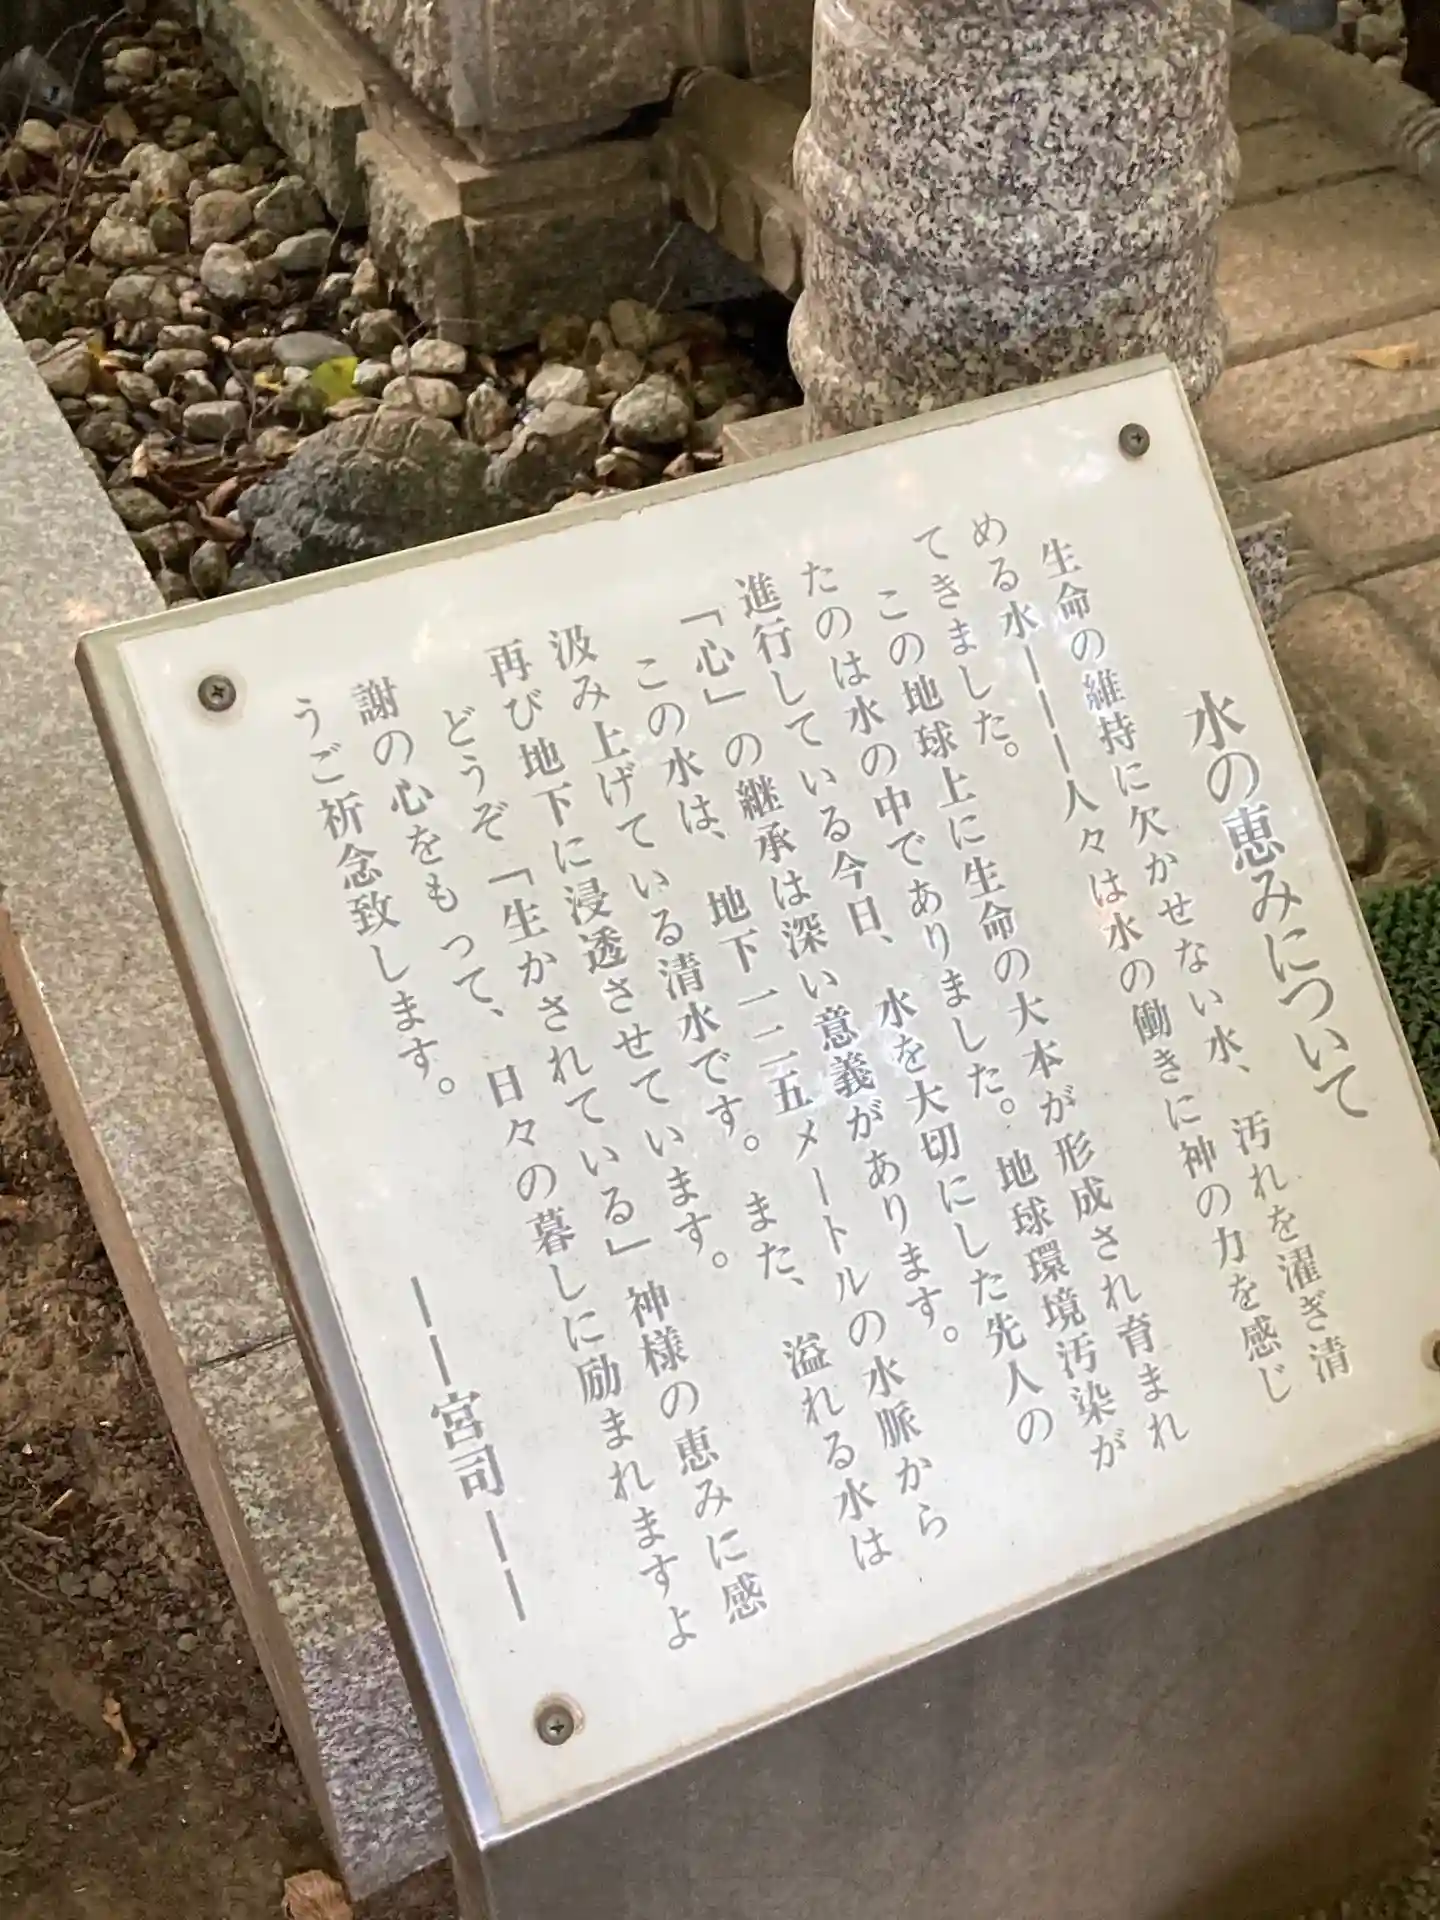 水の恵みについて
生命の維持に欠かせない水、汚れを濯ぎ清
める水———人々は水の働きに神の力を感じ
てきました。
この地球上に生命の大本が形成され育まれ
たのは水の中でありました。地球環境汚染が
進行している今日、水を大切にした先人の
「心」の継承は深い意義があります。
この水は、地下一二五メートルの水脈から
汲み上げている清水です。また、溢れる水は
再び地下に浸透させています。
どうぞ「生かされている」神様の恵みに感
謝の心をもって、日々の暮しに励まれますよ
うご祈念致します。
———宮司———